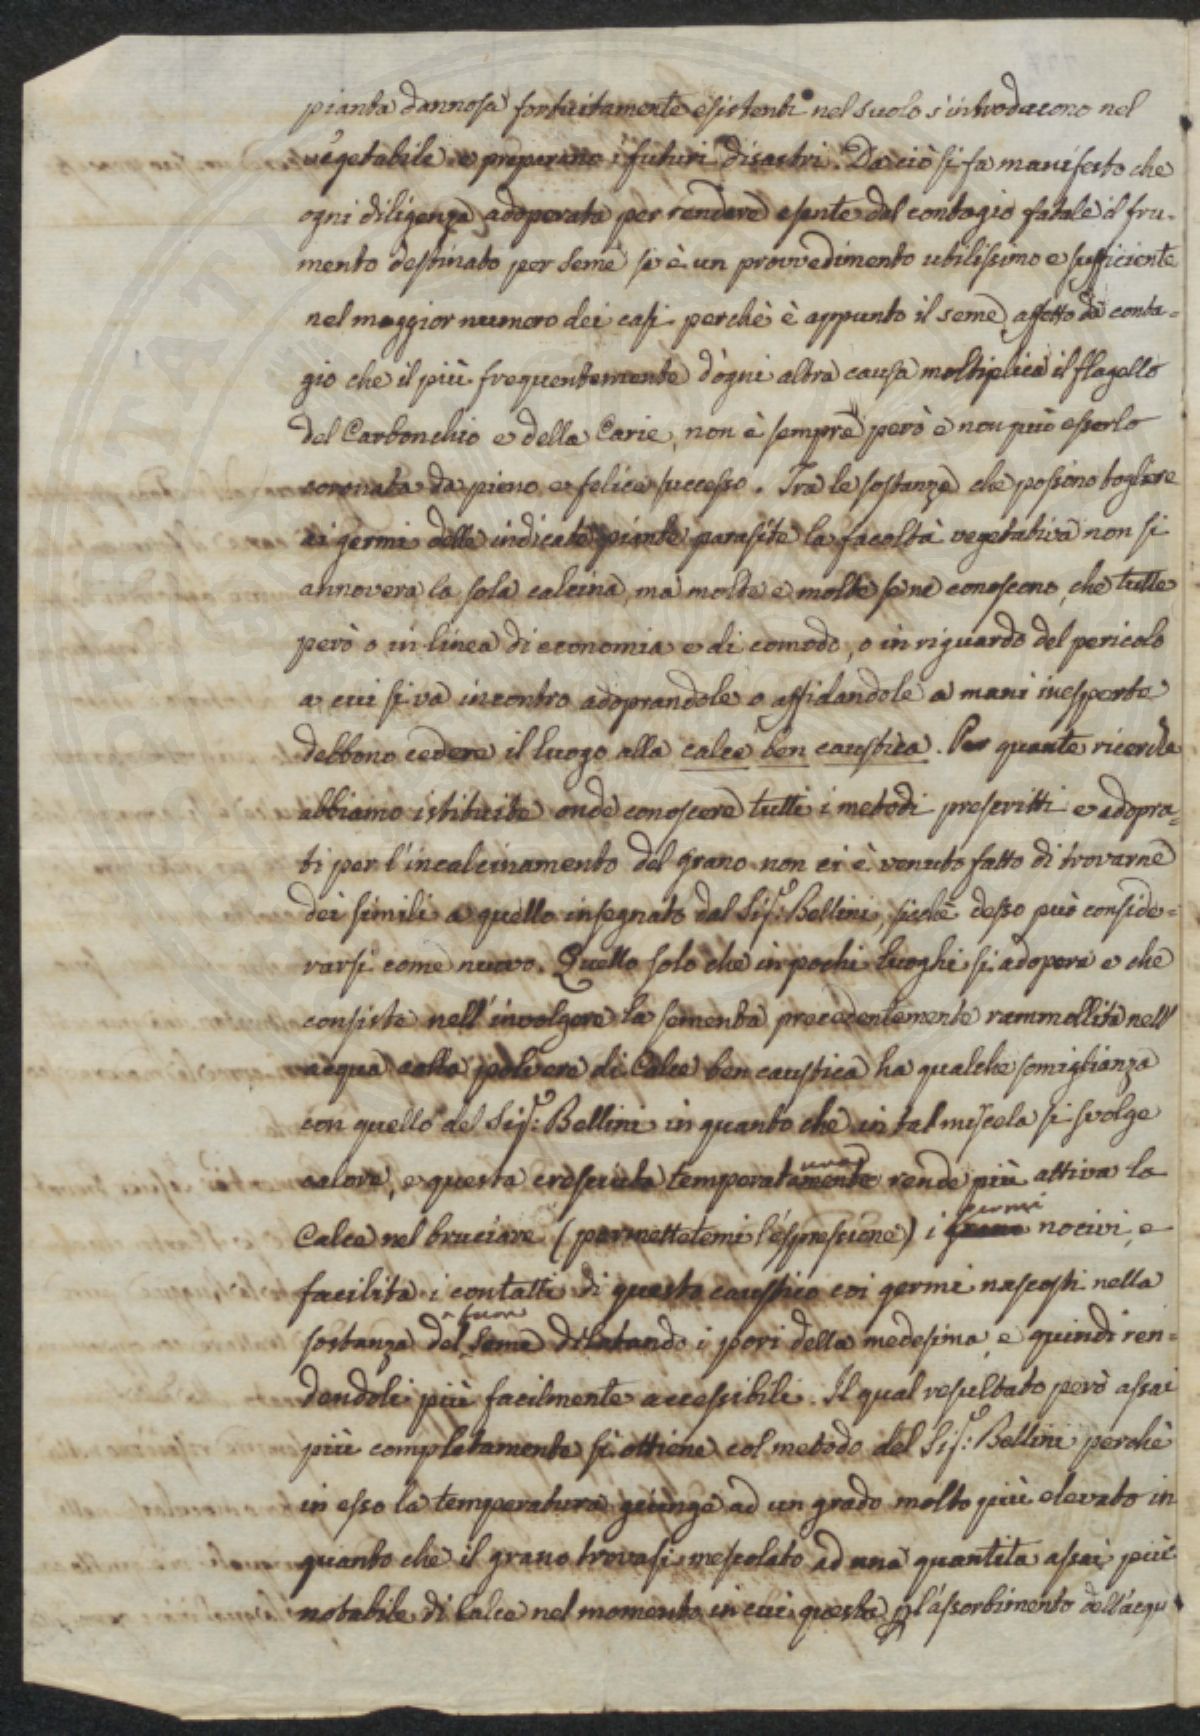 pianta dannosa fortuitamente esistenti nel suolo s'introducono nel
vegetabile e preparano i futuri disastri. Da ciò si fa manifesto che
ogni diligenza adoperata per rendere esente dal contagio fatale il fru-
mento destinato per seme si è un provvedimento utilissimo e sufficiente
nel maggior numero dei casi perchè è appunto il seme affetto da conta-
gio che il più frequentemente d'ogni altra causa moltiplica il flagello
del Carbonchio e della Carie, non è sempre però e non può esserlo
coronata da pieno e felice successo. Tra le sostanze che possono togliere
ai germi delle indicate piante parasite la facoltà vegetativa non si
annovera la sola calcina, ma molte e molte se ne conoscono, che tutte
però o in linea di economia e di comodo, o in riguardo del pericolo
a cui si va incontro adoprandole o affidandole a mani inesperte
debbono cedere il luogo alla calce ben caustica. Per quante ricerche
abbiamo istituite onde conoscere tutti i metodi prescritti e adopra-
ti per l'incalcinamento del grano non ci è venuto fatto di trovarne
dei simili a quello insegnato dal Sig.r Bellini, sicchè desso può conside-
rarsi come nuovo. Quello solo che in pochi luoghi si adopera e che
consiste nell'involgere la sementa precedentemente rammollita nell'
acqua colla polvere di Calce ben caustica ha qualche somiglianza
con quello del Sig.r Bellini in quanto che in tal miscela si svolge
calore, e questa cresciuta temperatura rende più attiva la
Calce nel bruciare (permettetemi l'espressione) i germi nocivi, e
facilita i contatti di questo caustico coi germi nascosti nella
sostanza del seme dilatando i pori della medesima, e quindi ren-
dendoli più facilmente accessibili. Il qual resultato però assai
più completamente si ottiene col metodo del Sig.r Bellini perchè
in esso la temperatura giunge ad un grado molto più elevato in
quanto che il grano trovasi mescolato ad una quantità assai più
notabile di Calce nel momento in cui questa p l'assorbimento dell'acqu